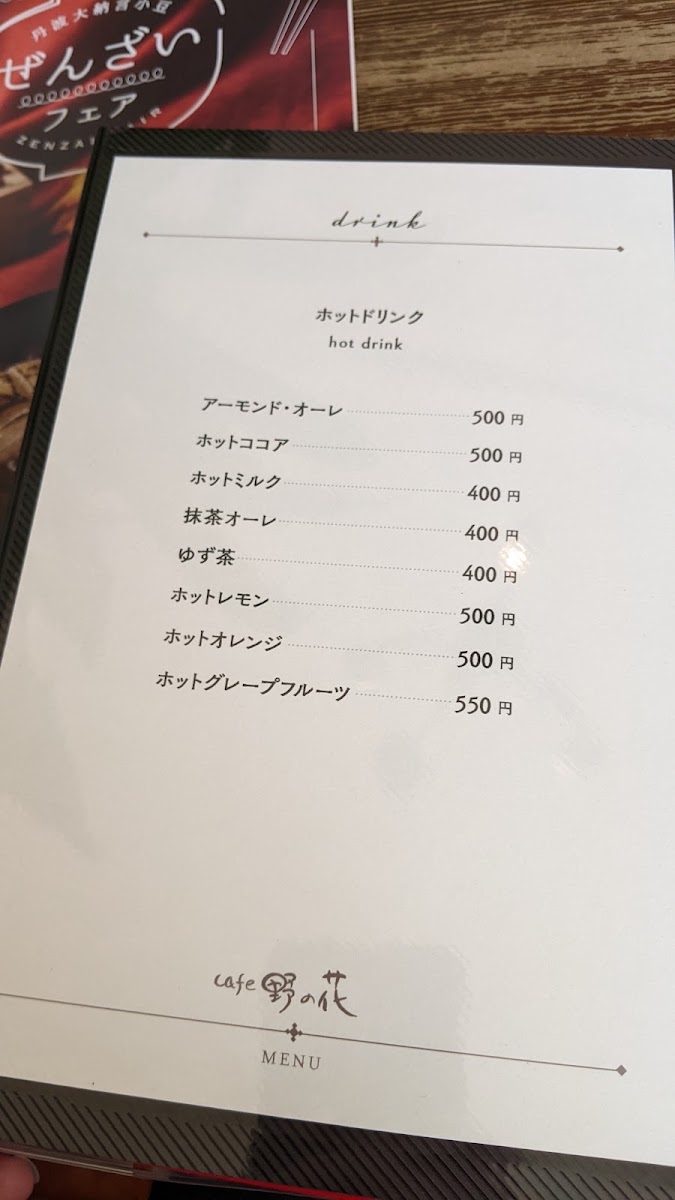 丹波大納言小豆
ぜんざい
フェア
drink
ホットドリンク
hot drink
アーモンド・オーレ 500 円
ホットココア 500 円
ホットミルク 400 円
抹茶オーレ 400 円
ゆず茶 400 円
ホットレモン 500 円
ホットオレンジ 500 円
ホットグレープフルーツ 550 円
cafe 野の花
MENU